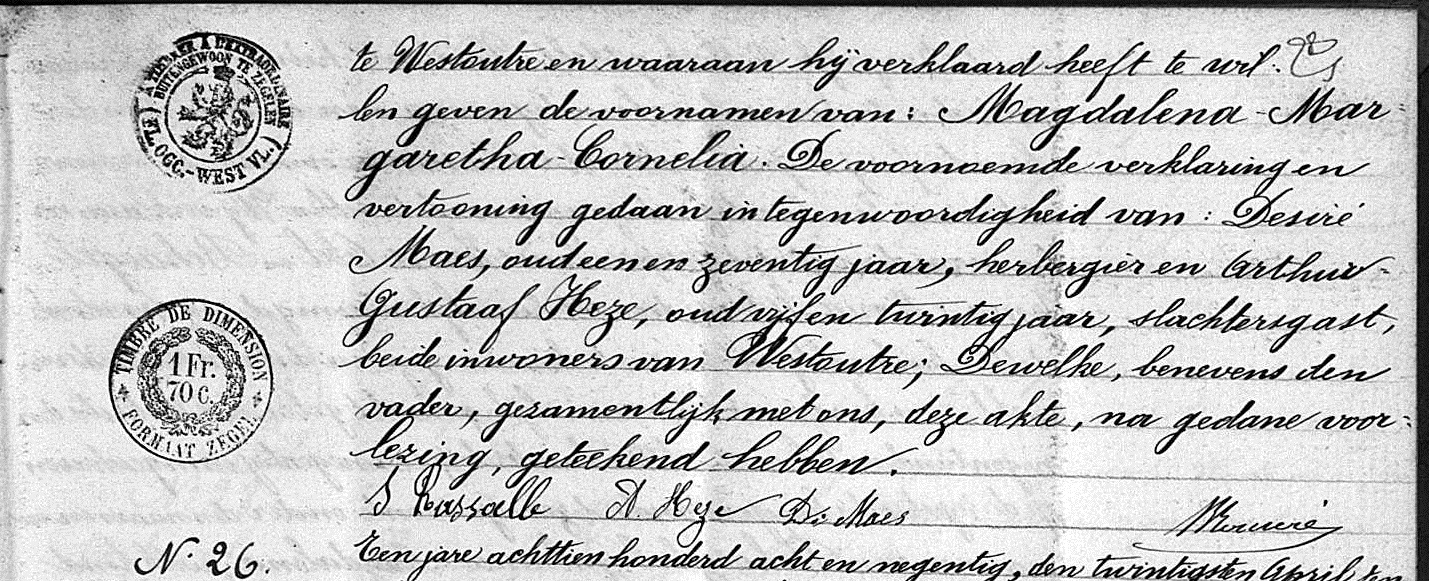 te Westoutre en waaraan hij verklaard heeft te wil-
len geven de voornamen van: Magdalena-Mar-
garetha-Cornelia. De voornoemde verklaring en
vertooning gedaan in tegenwoordigheid van: Desiré
Maes, oud een en zeventig jaar, herbergier en Arthur-
Gustaaf Heze, oud vijf en twintig jaar, slachtersgast,
beide inwoners van Westoutre; Dewelke, benevens den
vader, gezamentlijk met ons, deze akte, na gedane voor-
lezing, geteekend hebben.
A. Heze D. Maes
N. 26.
Een jare achttien honderd acht en negentig, den twintigsten April
BUITENGEWOON TE ZEGELEN
OCC.-WEST VL.
TIMBRE DE DIMENSION
1 Fr.
70 C.
FORMAAT ZEGEL